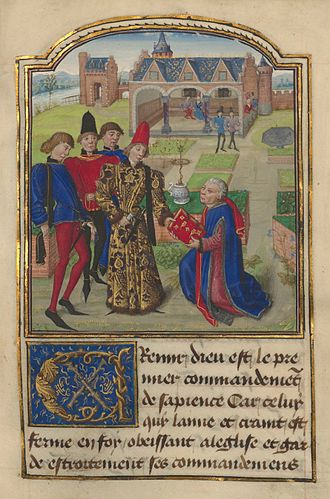 Cremir dieu est le pre
mier commandemēt
de sapience Car celuy
quy laime et craint est
ferme en foy obeissant a leglise et gar
de estroitement ses commandemens